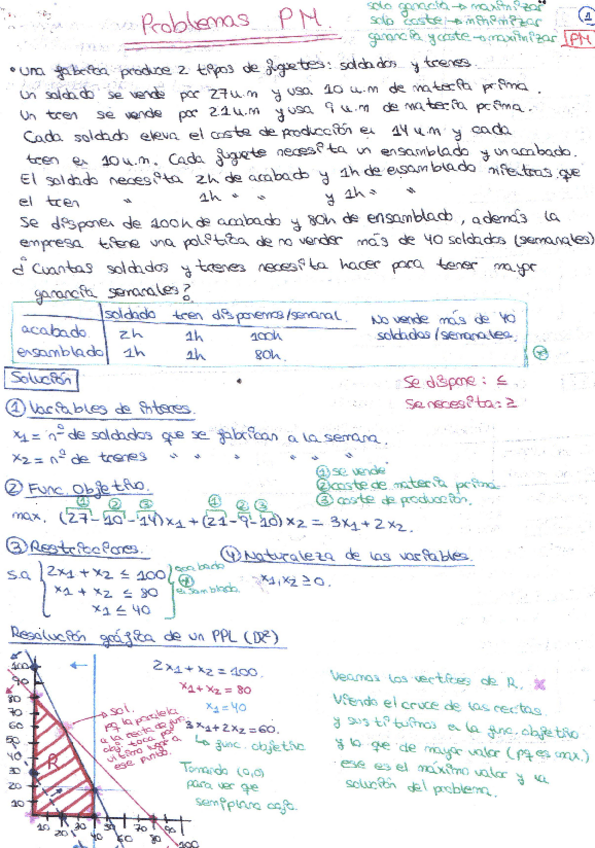 Problemas PM
solo ganacia → maximizar
solo coste → minimizar
ganancia y coste → maximizar PM
1
• Una fabrica produce 2 tipos de juguetes: soldados y trenes.
Un soldado se vende por 27 u.m y usa 10 u.m de materia prima.
Un tren se vende por 21 u.m y usa 9 u.m de materia prima.
Cada soldado eleva el coste de producción en 14 u.m y cada
tren en 10 u.m. Cada juguete necesita un ensamblado y un acabado.
El soldado necesita 2h de acabado y 1h de ensamblado mientras que
el tren " 1h " " y 1h " "
Se disponen de 100h de acabado y 80h de ensamblado, además la
empresa tiene una política de no vender más de 40 soldados (semanales)
¿Cuantas soldados y trenes necesita hacer para tener mayor
ganancia semanales?
soldado tren disponemos/semanal.
acabado 2h 1h 100h
ensamblado 1h 1h 80h.
No vende más de 40
soldados/semanales.
Solución
Se dispone: ≤
Se necesita: ≥
① Variables de interes.
x1 = nº de soldados que se fabrican a la semana.
x2 = nº de trenes " " " " " "
② Func. Objetivo.
① se vende
② coste de materia prima
③ coste de producción.
① ② ③ ① ② ③
max. (27-10-14)x1 + (21-9-10)x2 = 3x1 + 2x2.
③ Restricciones.
s.a 2x1 + x2 ≤ 100 acabado
x1 + x2 ≤ 80 ensamblado
x1 ≤ 40
④ Naturaleza de las variables.
x1, x2 ≥ 0.
Resolución gráfica de un PPL (IR²)
2x1 + x2 = 100.
x1 + x2 = 80
x1 = 40
3x1 + 2x2 = 60.
↳ func. objetivo
Tomando (0,0)
para ver que
semiplano cojo.
sol.
pq la paralela
a la recta de func
obj toca por
último lugar a
ese punto.
Veamos los vertices de R. x
Viendo el cruce de las rectas
y sustituimos en la func. objetivo
y la que de mayor valor (pq es max.)
ese es el máximo valor y la
solución del problema.
100
90
80
70
60
50
40
30
20
10
R
10 20 30 40 60 80 90 100